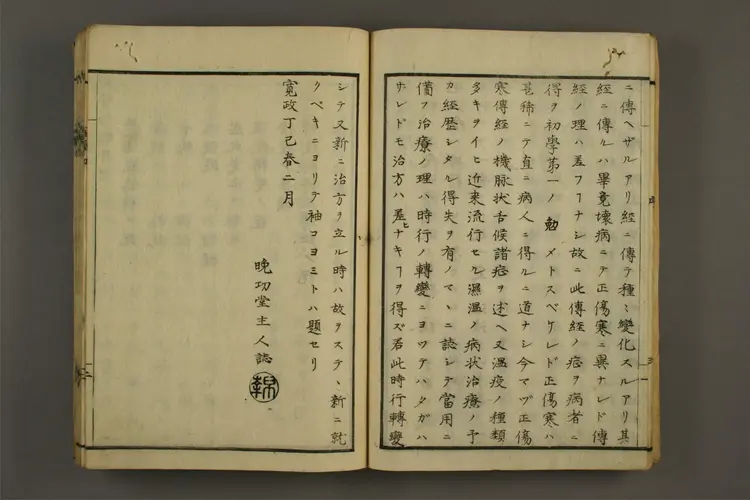 ニ傳ヘザルアリ經ニ傳テ種〻變化スルアリ其
經ニ傳ルハ畢竟壞病ニテ正傷寒ニ異ナレド傳
經ノ理ハ差フヿナシ故ニ此傳經ノ症ヲ病者ニ
得ヲ初學第一ノ 勉メトスベケレド正傷寒ハ
甚稀ニテ直ニ病人ニ得ルニ道ナシ今マヅ正傷
寒傳經ノ機脉狀舌候諸症ヲ述ヘ又温疫ノ種類
多キヲイヒ近來流行セル濕温ノ病狀治療ノ予
カ經歴シタル得失ヲ有ノマヽニ誌シテ當用ニ
備フ治療ノ理ハ時行ノ轉變ニヨツテハタガハ
ザレドモ治方ハ差ヒナキヿヲ得ズ若此時行轉變
シテ又新ニ治方ヲ立ル時ハ故ヲステヽ新ニ就
クベキニヨリテ袖コヨミトハ題セリ
寛政丁巳春二月
晩功堂主人誌